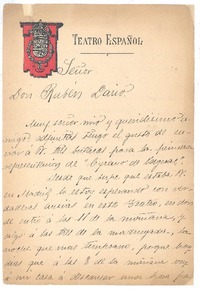 TEATRO ESPAÑOL
Señor
Don Rubén Darío.
Muy señor mío y queridísimo
amigo: adjuntas tengo el gusto de en-
viar á V. las butacas para la primera
representación de "Cyrano de Bergerac"
Desde que supe que estaba V.
en Madrid le estoy esperando con ver-
daderas ansias en este Teatro, en don-
de entro á las 11 de la mañana, y
salgo á las de la madrugada, la
noche que mas temprano, porque hay
dias que á las 8 de la mañana voy
á mi casa á descansar unas horas para